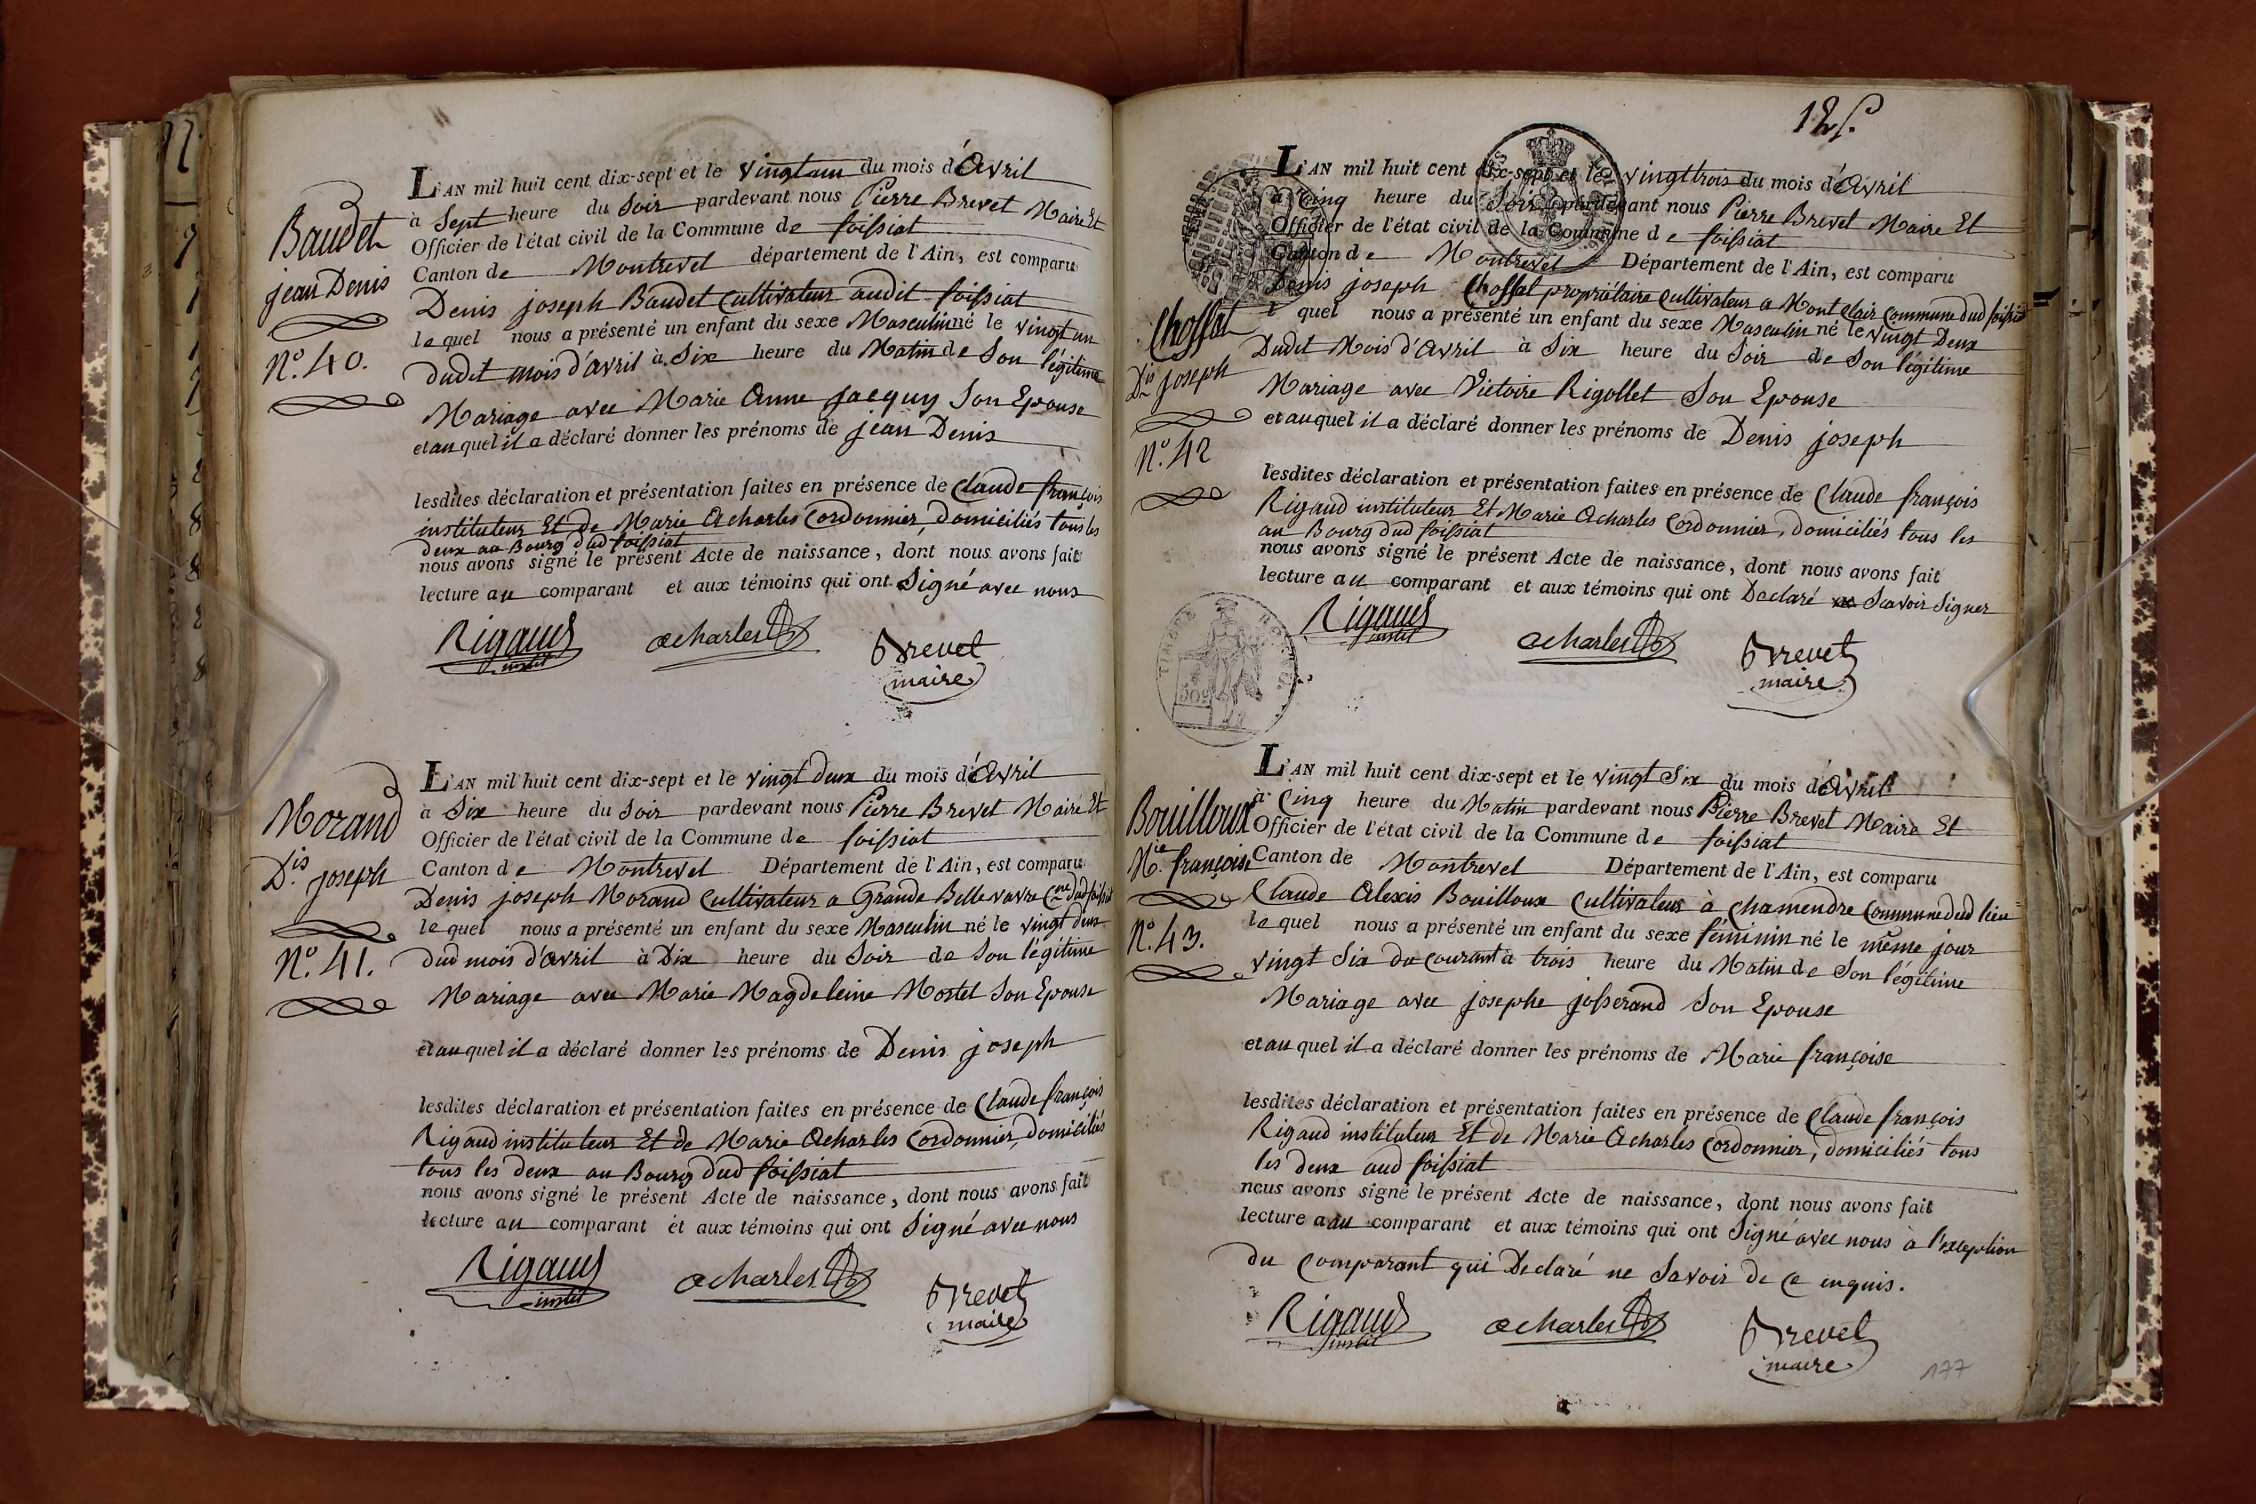 Baudet
jean Denis
N.º 40.
L'AN mil huit cent dix-sept et le vingt un du mois d'Avril
à Sept heure du Soir pardevant nous Pierre Brevet Maire Et
Officier de l'état civil de la Commune de foissiat
Canton de Montrevel département de l'Ain, est comparu
Denis joseph Baudet Cultivateur audit foissiat
le quel nous a présenté un enfant du sexe Masculin né le vingt un
dudit mois d'avril à Six heure du Matin de Son légitime
Mariage avec Marie Anne Jacquy Son Epouse
et au quel il a déclaré donner les prénoms de jean Denis
lesdites déclaration et présentation faites en présence de Claude françois
instituteur Et de Marie Acharles Cordonnier, domiciliés tous les
deux au Bourg dud foissiat
nous avons signé le présent Acte de naissance, dont nous avons fait
lecture au comparant et aux témoins qui ont Signé avec nous
Rigaud acharles Brevet
instit maire
Morand
D.is joseph
N.º 41.
L'AN mil huit cent dix-sept et le vingt deux du mois d'Avril
à Six heure du Soir pardevant nous Pierre Brevet Maire Et
Officier de l'état civil de la Commune de foissiat
Canton de Montrevel Département de l'Ain, est comparu
Denis joseph Morand Cultivateur a Grande Bellevavre C.ne dud foissiat
le quel nous a présenté un enfant du sexe Masculin né le vingt deux
dud mois d'avril à Dix heure du Soir de Son légitime
Mariage avec Marie Magdeleine Mostel Son Epouse
et au quel il a déclaré donner les prénoms de Denis joseph
lesdites déclaration et présentation faites en présence de Claude françois
Rigaud instituteur Et de Marie Acharles Cordonnier, domiciliés
tous les deux au Bourg dud foissiat
nous avons signé le présent Acte de naissance, dont nous avons fait
lecture au comparant et aux témoins qui ont Signé avec nous
Rigaud acharles Brevet
instit maire
Choffat
D.is joseph
N.º 42
L'AN mil huit cent dix-sept et le vingt trois du mois d'Avril
à Cinq heure du Soir pardevant nous Pierre Brevet Maire Et
Officier de l'état civil de la Commune de foissiat
Canton de Montrevel Département de l'Ain, est comparu
Denis joseph Choffat propriétaire Cultivateur a Mont Clair Commune dud foissiat
le quel nous a présenté un enfant du sexe Masculin né le vingt Deux
Dudit Mois d'Avril à Six heure du Soir de Son légitime
Mariage avec Victoire Rigollet Son Epouse
et au quel il a déclaré donner les prénoms de Denis joseph
lesdites déclaration et présentation faites en présence de Claude françois
Rigaud instituteur Et Marie Acharles Cordonnier, domiciliés tous les
au Bourg dud foissiat
nous avons signé le présent Acte de naissance, dont nous avons fait
lecture au comparant et aux témoins qui ont Declaré Scavoir Signer
Rigaud acharles Brevet
instit maire
Bouilloux
M.ie françoise
N.º 43.
L'AN mil huit cent dix-sept et le vingt Six du mois d'Avril
à Cinq heure du Matin pardevant nous Pierre Brevet Maire Et
Officier de l'état civil de la Commune de foissiat
Canton de Montrevel Département de l'Ain, est comparu
Claude Alexis Bouilloux Cultivateur à Chamendre Commune dud lieu
le quel nous a présenté un enfant du sexe féminin né le même jour
vingt Six du courant à trois heure du Matin de Son légitime
Mariage avec josephe josserand Son Epouse
et au quel il a déclaré donner les prénoms de Marie françoise
lesdites déclaration et présentation faites en présence de Claude françois
Rigaud instituteur Et de Marie Acharles Cordonnier, domiciliés tous
les deux aud foissiat
nous avons signé le présent Acte de naissance, dont nous avons fait
lecture a au comparant et aux témoins qui ont Signé avec nous à l'exception
du comparant qui Declaré ne Savoir de ce enquis.
Rigaud acharles Brevet
instit maire
177